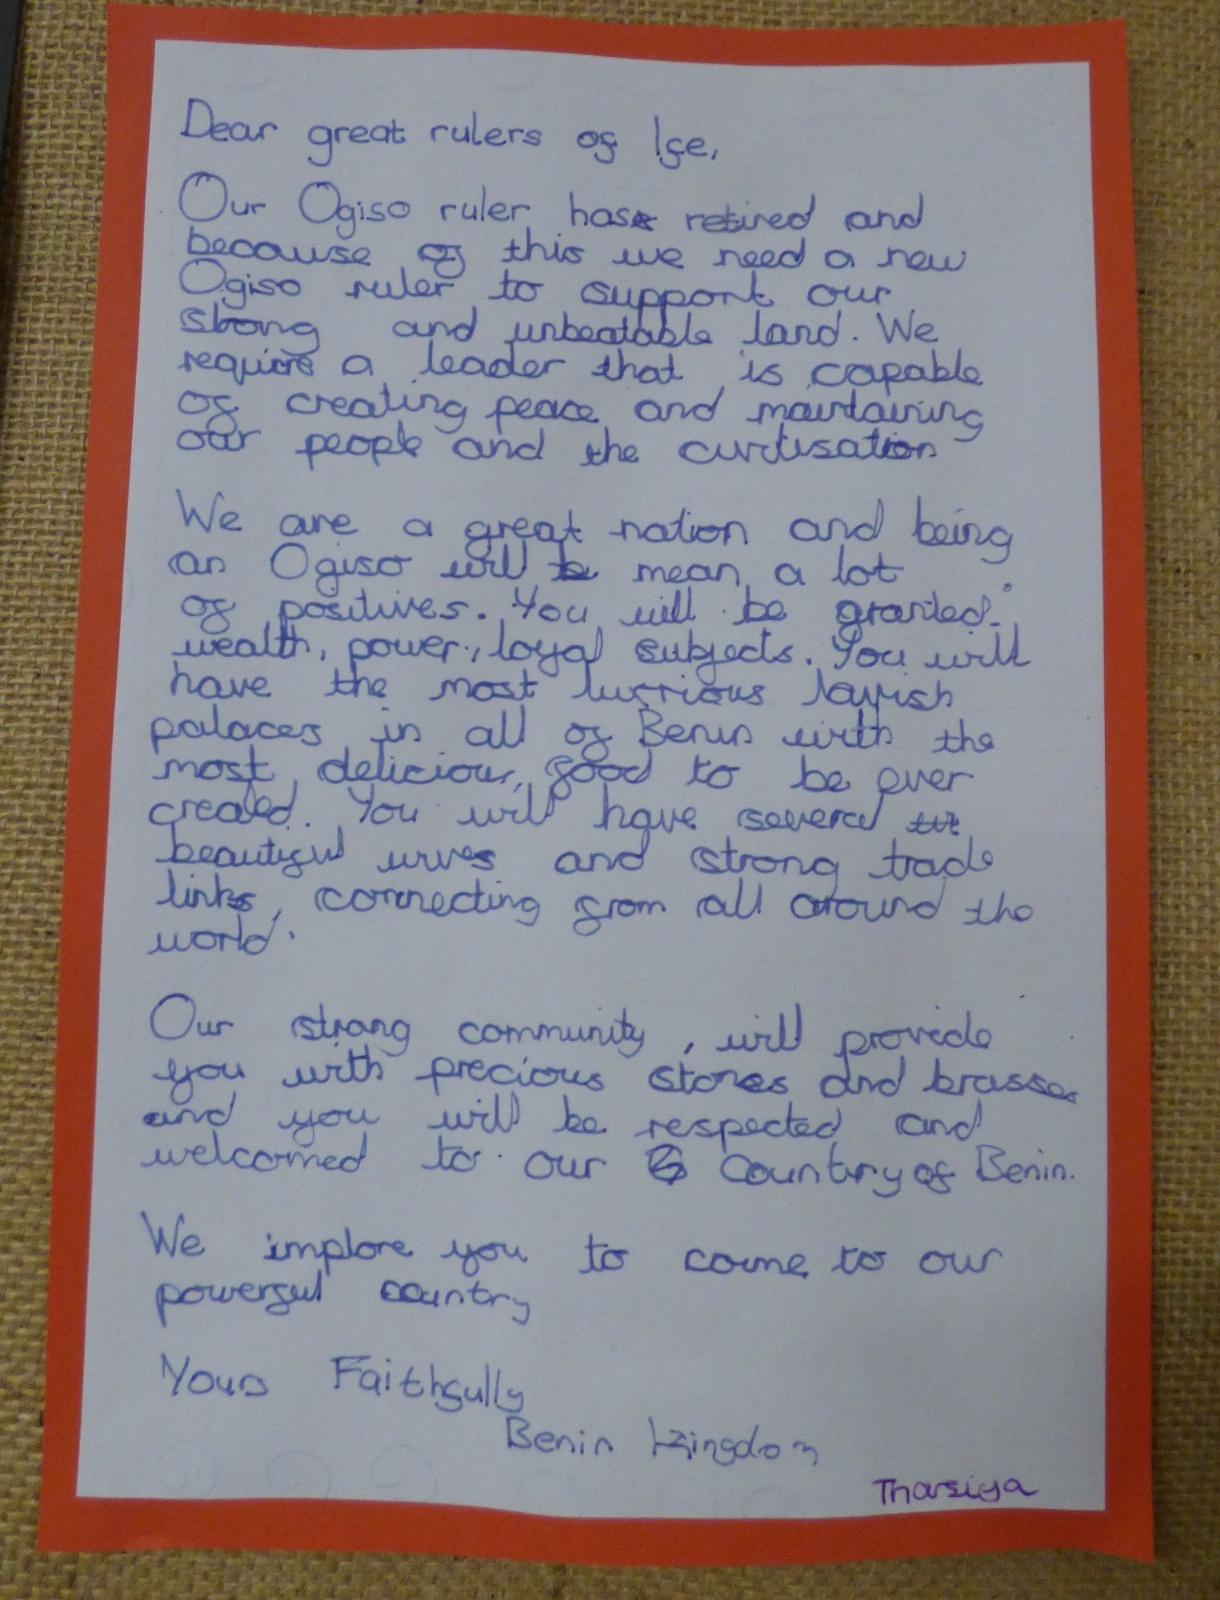 Dear great rulers of Ife,
Our Ogiso ruler has retired and
because of this we need a new
Ogiso ruler to support our
strong and unbeatable land. We
require a leader that is capable
of creating peace and maintaining
our people and the
We are a great nation and being
an Ogiso will mean a lot
of positives. You will be granted
wealth, power, loyal subjects. You will
have the most luxrious lavish
palaces in all of Benin with the
most delicious, food to be ever
created. You will have several
beautiful wives and strong trade
links, connecting from all around the
world.
Our strong community, will provide
you with precious stones and brasses
and you will be respected and
welcomed to our Country of Benin.
We implore you to come to our
powerful country
Yours Faithfully
Benin Kingdom
Tharsiya